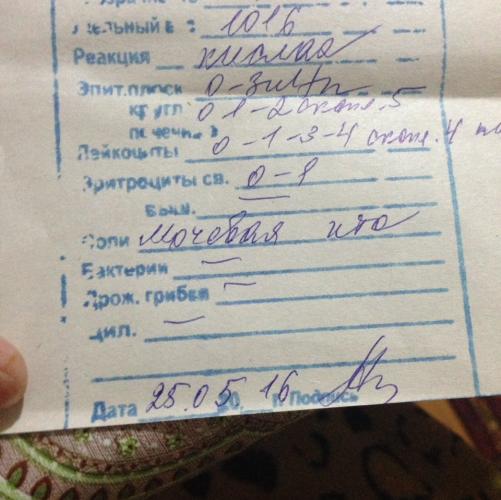 дельный в : 1016
Реакция кислая
Эпит. плоск 0-3 и/п
кр угл 0 1-2 скопл. 5
почечн.
Лейкоциты 0-1-3-4 скопл. 4
Эритроциты св. 0-1
выщ.
Соли мочевая к-та
Бактерии —
Дрож. грибки —
Цил. —
Дата 25.05 20 16 г. Подпись